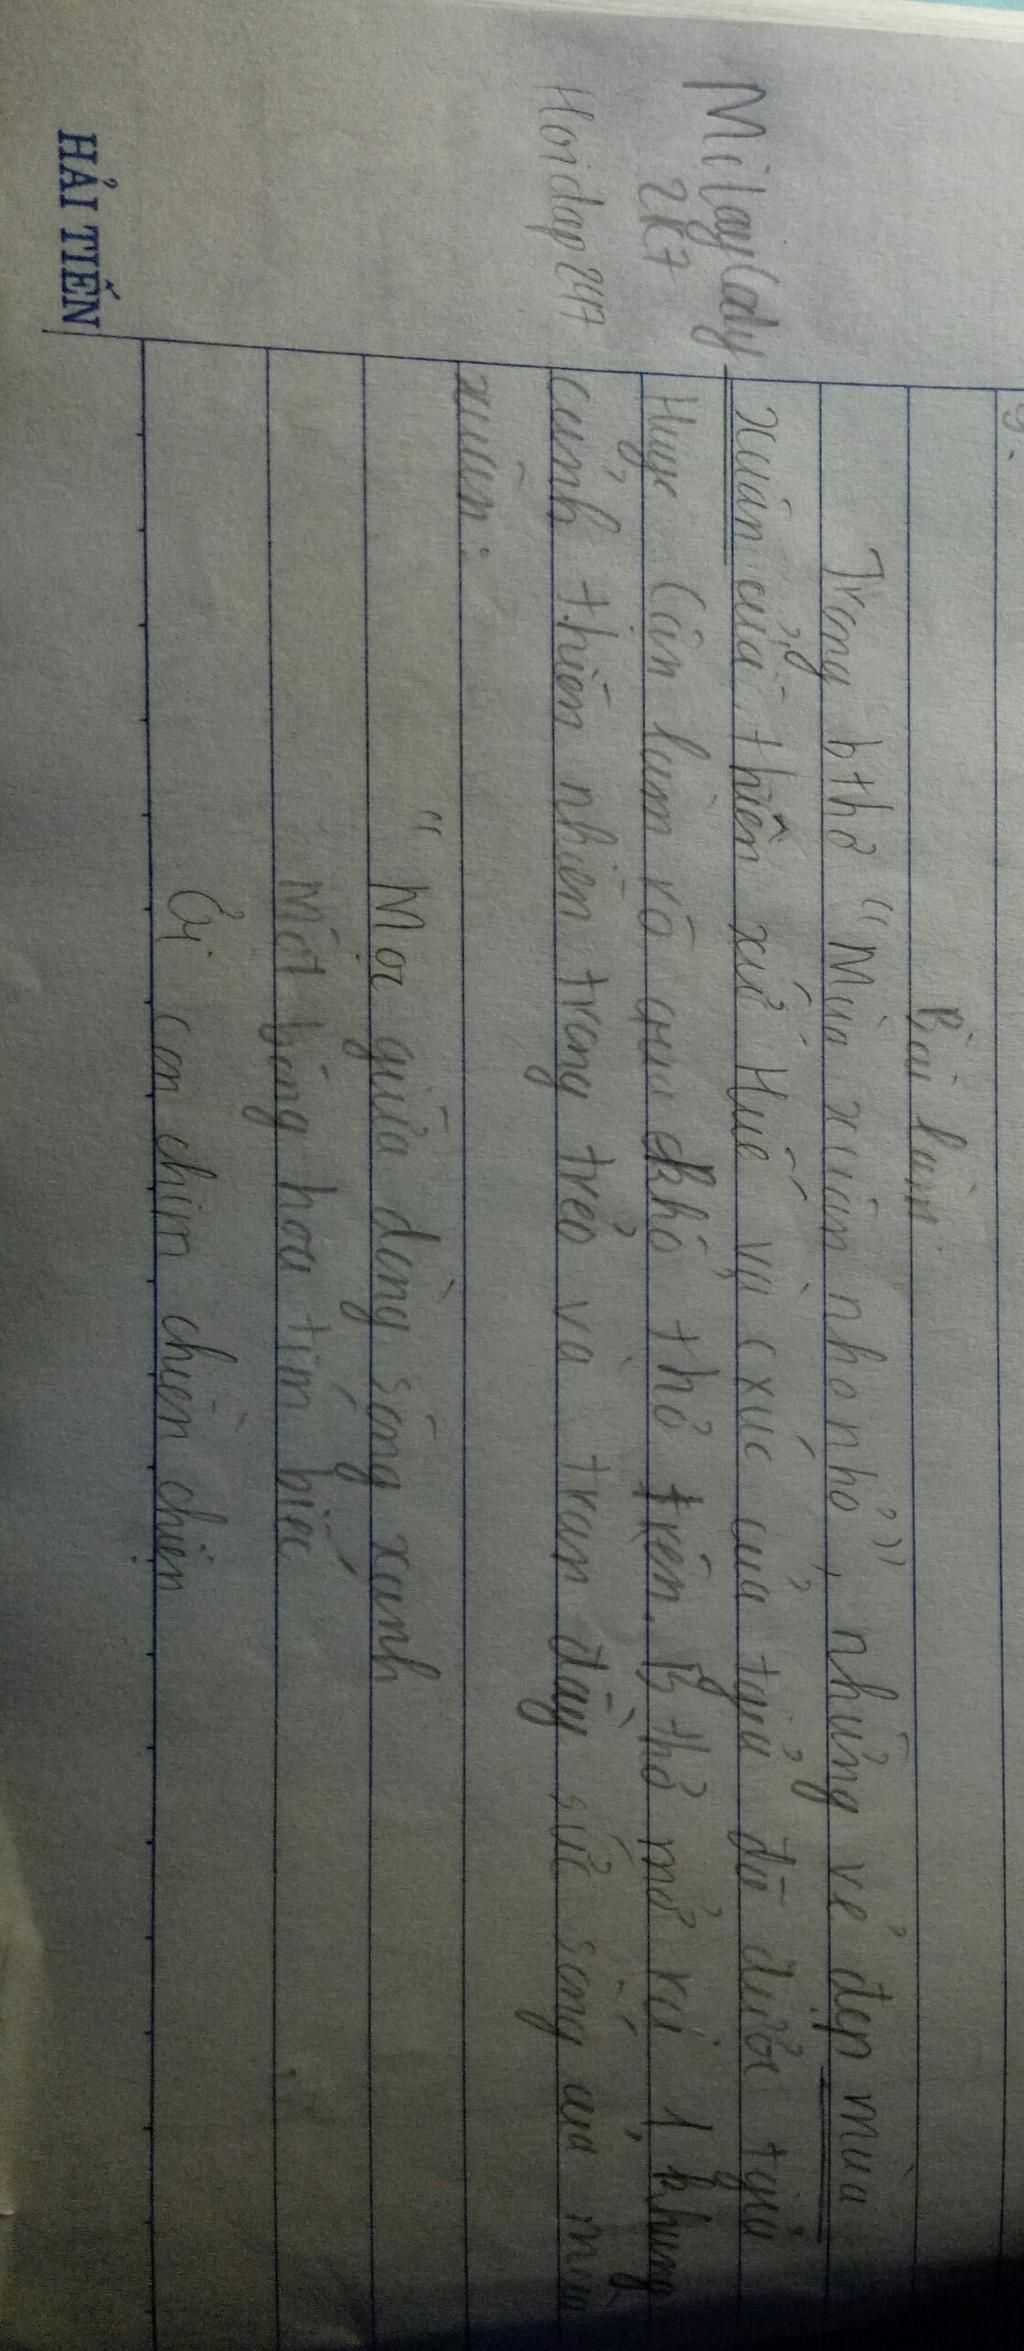 Bài làm
Trong bthơ "Mùa xuân nho nhỏ", những vẻ đẹp mùa
xuân của thiên xứ Huế và cxúc của tgiả đã được tgiả
Huye Cận làm rõ qua khổ thơ trên. Bthơ mở ra 1 khung
cảnh thiên nhiên trong trẻo và tràn đầy sức sống của mùa
xuân:
"Mọc giữa dòng sông xanh
Một bông hoa tím biếc
Ơi con chim chiền chiện
Milaylady
2k7
Hoidap247
HẢI TIẾN